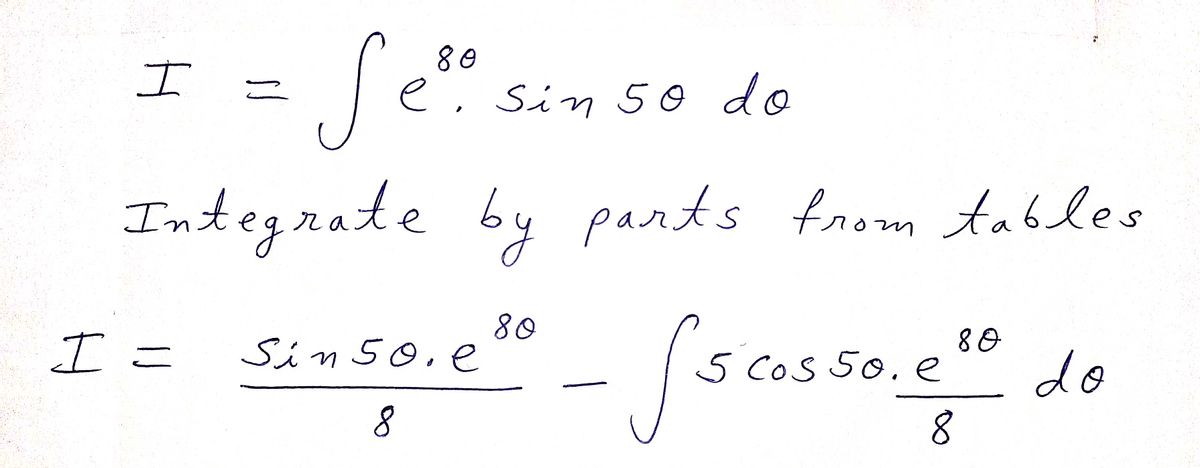 I = ∫ e^{8θ} . sin 5θ dθ
Integrate by parts from tables
I = \frac{sin 5θ . e^{8θ}}{8} - ∫ 5 cos 5θ . \frac{e^{8θ}}{8} dθ